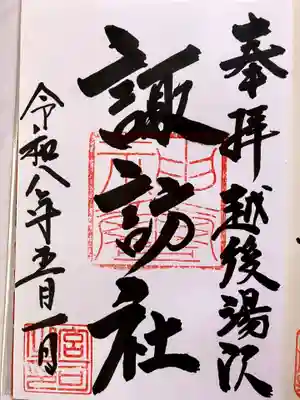 奉拝 越後湯沢
諏訪社
令和八年五月一日